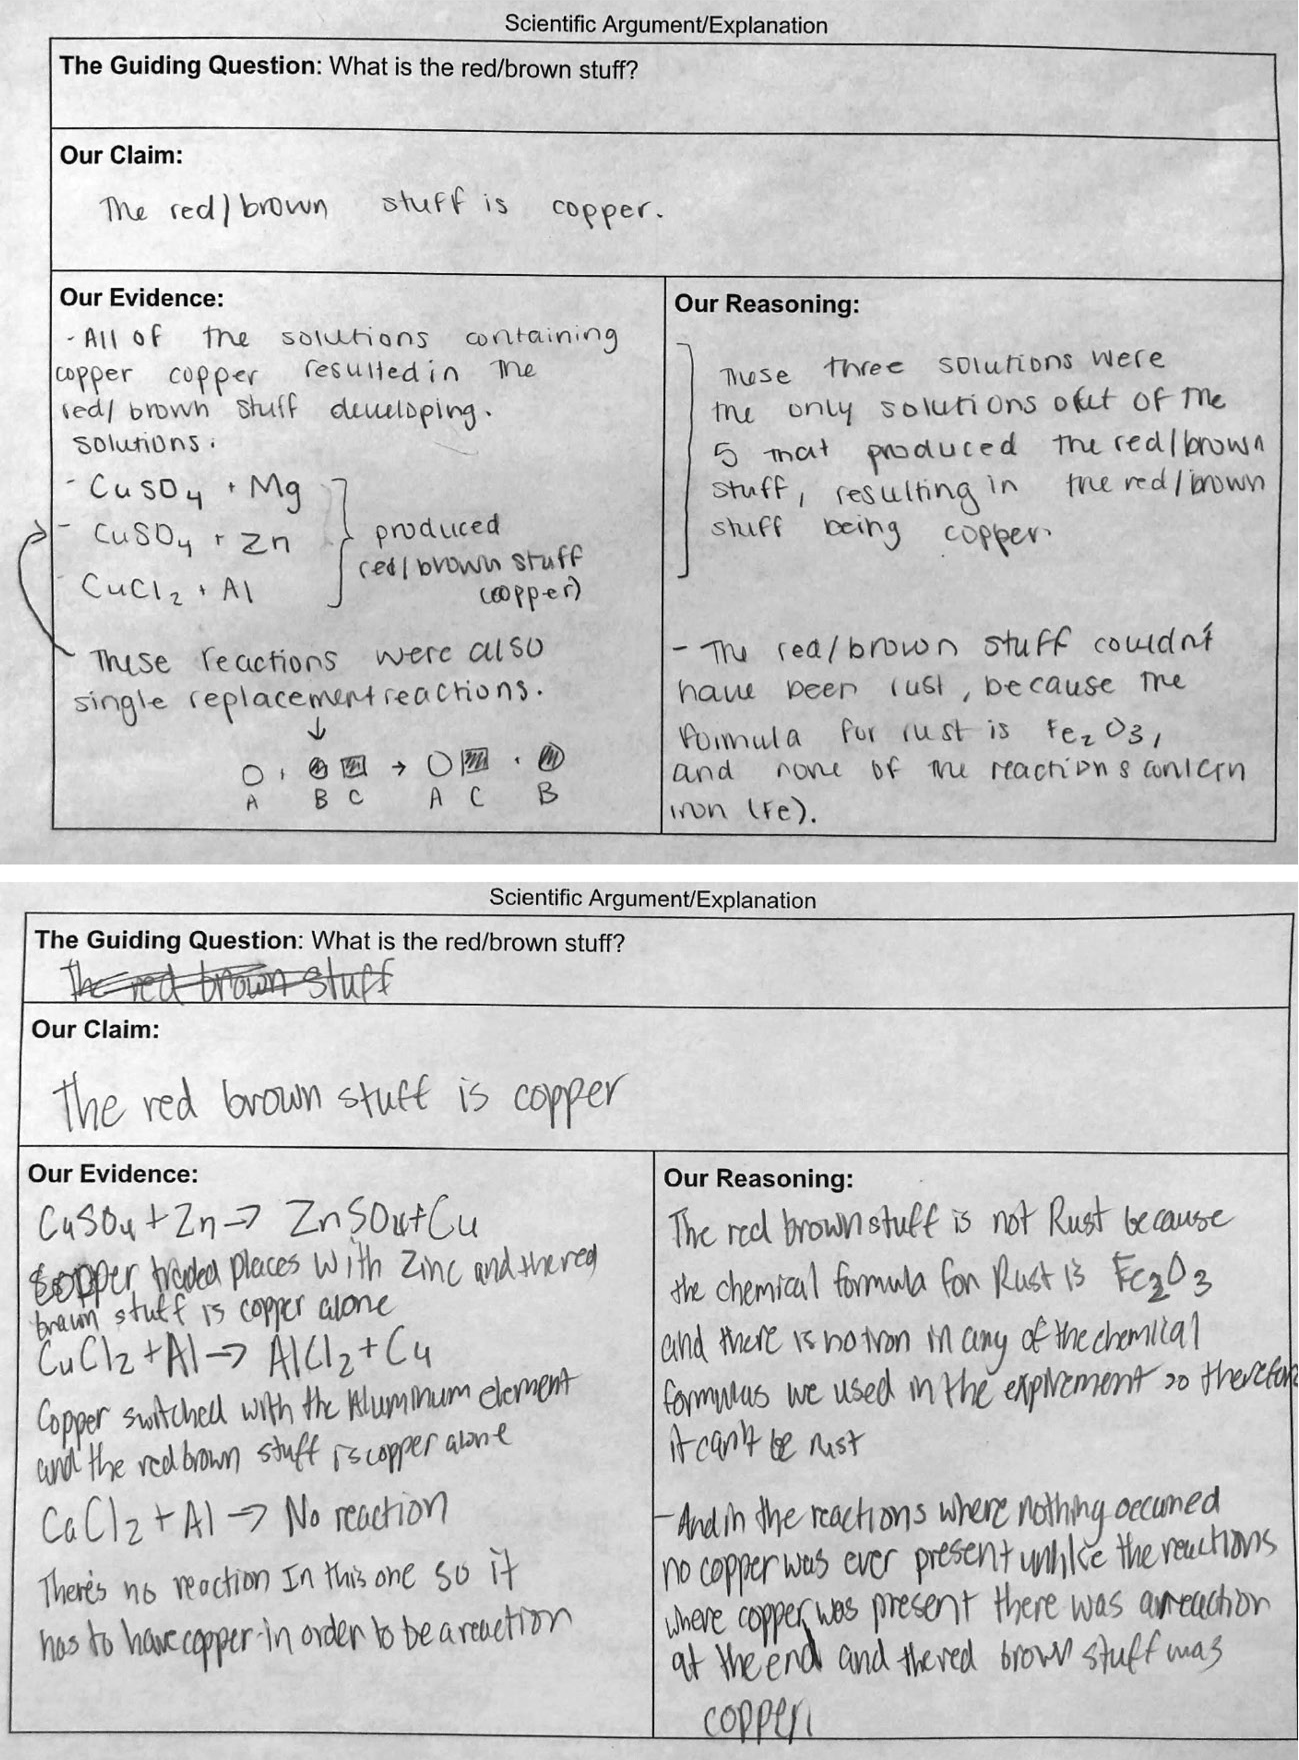 Scientific Argument/Explanation
The Guiding Question: What is the red/brown stuff?
Our Claim:
The red/brown stuff is copper.
Our Evidence:
- All of the solutions containing
copper copper resulted in the
red/brown stuff developing.
solutions:
- CuSO4 + Mg
- CuSO4 + Zn
- CuCl2 + Al
produced
red/brown stuff
(copper)
These reactions were also
single replacement reactions.
A B C A C B
Our Reasoning:
These three solutions were
the only solutions out of the
5 that produced the red/brown
stuff, resulting in the red/brown
stuff being copper.
- The red/brown stuff couldn't
have been rust, because the
formula for rust is Fe2O3,
and none of the reactions contain
iron (Fe).
Scientific Argument/Explanation
The Guiding Question: What is the red/brown stuff?
The red brown stuff
Our Claim:
The red brown stuff is copper
Our Evidence:
CuSO4 + Zn → ZnSO4 + Cu
Copper traded places with Zinc and the red
brown stuff is copper alone
CuCl2 + Al → AlCl2 + Cu
Copper switched with the Aluminum element
and the red brown stuff is copper alone
CaCl2 + Al → No reaction
There's no reaction In this one so it
has to have copper in order to be a reaction
Our Reasoning:
The red brown stuff is not Rust because
the chemical formula for Rust is Fe2O3
and there is no iron in any of the chemical
formulas we used in the expirement so therefore
it can't be rust
- And in the reactions where nothing occurred
no copper was ever present unlike the reactions
where copper was present there was a reaction
at the end and the red brown stuff was
copper.